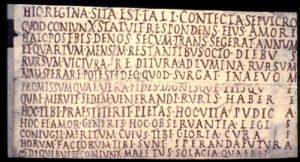 HIC REGINA SITA EST TALI CONTECTA SEPVLCRO
QVOD CONIVNX STATVIT RESPONDENS EIVS AMORI
HAEC POST BIS DENOS SECVM TRANSSEGERAT ANNVM
ET QVARTVM MENSEM RESTANTIBVS OCTO DIEBVS
RVRSVM VICTVRA REDITVRA AD LVMINA RVRSVM
NAM SPERARE POTEST IDEO QVOD SVRGAT IN AEVOM
PROMISSVM QVAE VERA FIDES DIGNISQVE PIISQVE
QVAE MERVIT SEDEM VENERANDI RVRIS HABERE
HOC TIBI PRAESTITERIT PIETAS HOC VITA PVDICA
HOC ET AMOR GENERIS HOC OBSERVANTIA LEGIS
CONIVGII MERITVM CVIVS TIBI GLORIA CVRAE
HORVM FACTORVM TIBI SVNT SPERANDA FVTVRA
DE QVIBVS ET CONIVNX MAESTVS SOLACIA QVAERIT